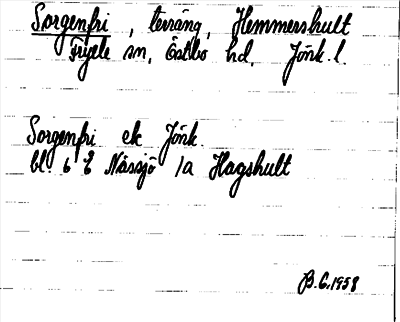 Sorgenfri, terräng, Hemmershult
Fryele sn, Östbo hd, Jönk. l.
Sorgenfri ek Jönk.
bl. 6 E Nässjö 1a Hagshult
B.G. 1958